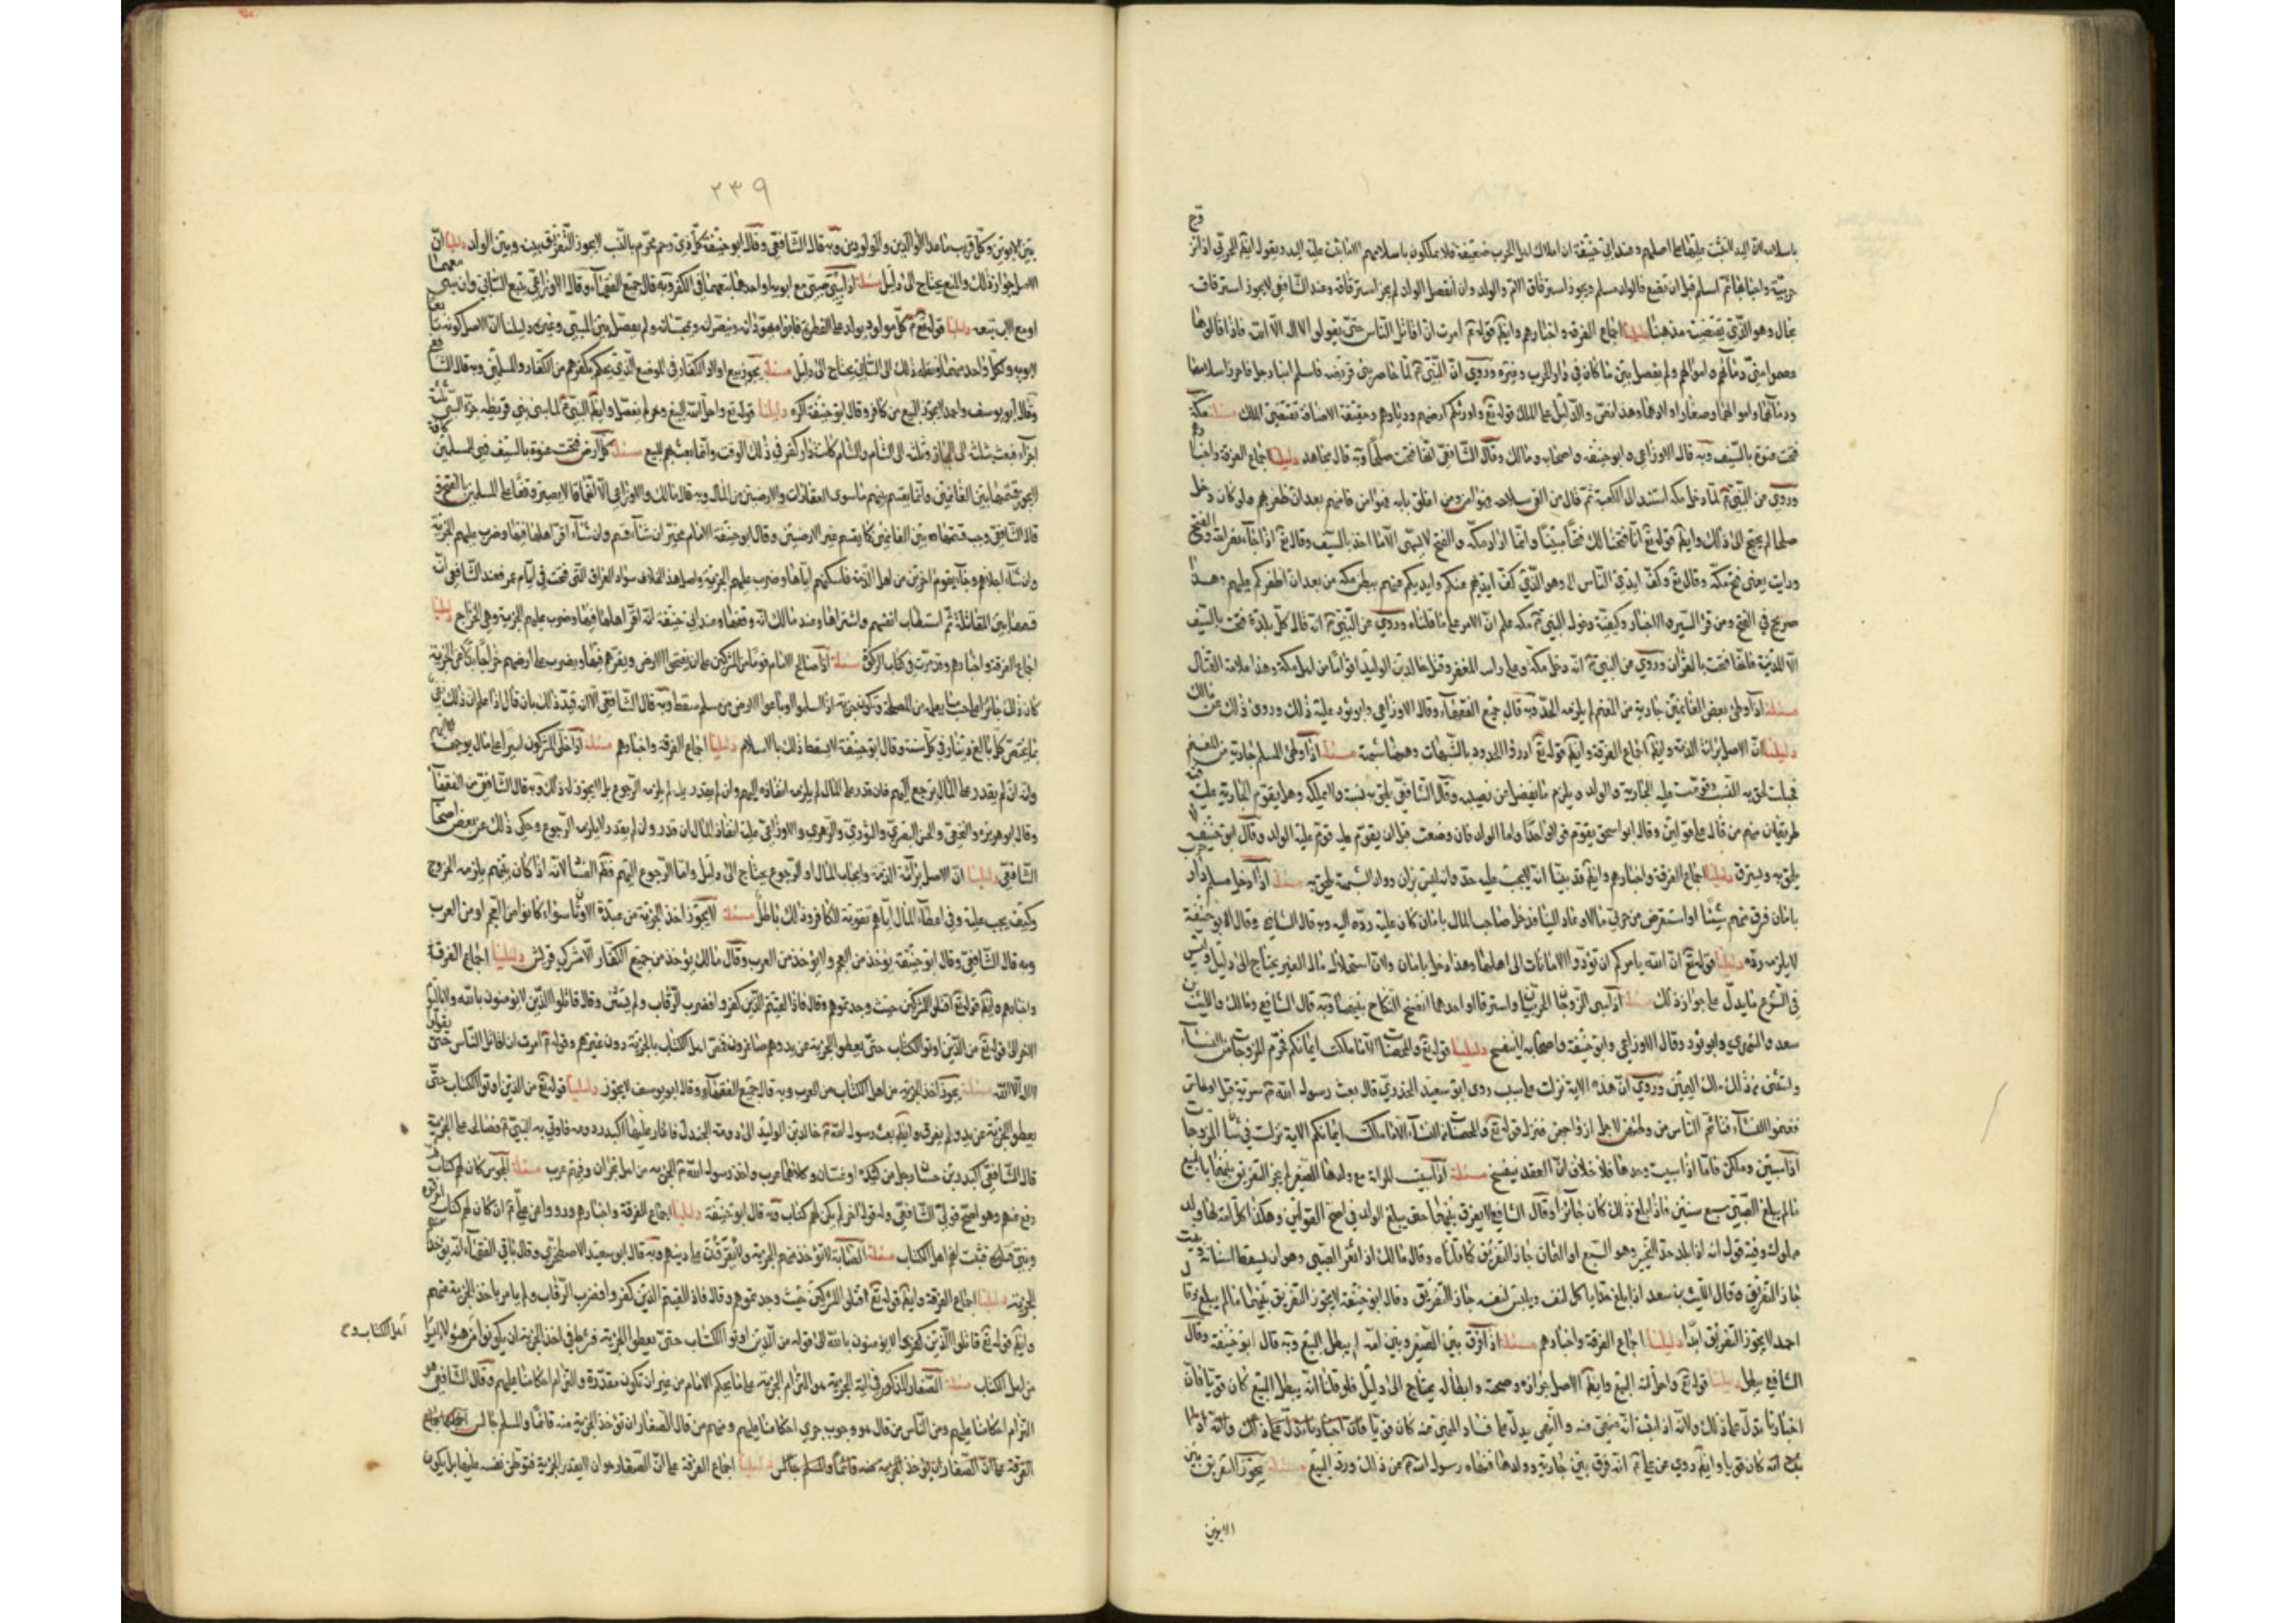 باسلامه لان اليد اثبت عليها على اصلهم وعند ابي حنيفة ان املاك اهل الحرب ضعيفة فلا يملكون باسلامهم الا ما ثبت عليه اليد ويقول ايضا الحربي اذا تزوج
حربية واحبلها ثم اسلم قبل ان تضع فالولد مسلم ويجوز استرقاق الام والولد وان انفصل الولد لم يجز استرقاقه وعند الشافعي لا يجوز استرقاقه
بحال وهو الذي يقتضيه مذهبنا دليلنا اجماع الفرقة واخبارهم وايضا قوله امرت ان اقاتل الناس حتى يقولوا لا اله الا الله فاذا قالوها
عصموا مني دماءهم واموالهم ولم يفصل بين ما كان في دار الحرب وغيره وروي ان النبي لما حاصر بني قريضه فاسلم ابنا رجل فاحرز اسلامهما
ودمائهما واموالهما وصغار اولادهما وهذا نص والدليل على الملك قوله تع واورثكم ارضهم وديارهم وحقيقة الاضافة تقتضي الملك مسئلة مكة
فتحت عنوة بالسيف وبه قال الاوزاعي وابو حنيفه واصحابه ومالك وقال الشافعي انها فتحت صلحا وبه قال مجاهد دليلنا اجماع الفرقة واخبارهم
وروي عن النبي لما دخل مكه استند الى الكعبة ثم قال من القى سلاحه فهو امن ومن اغلق بابه فهو امن فامنهم بعد ان ظفر بهم ولو كان دخل
صلحا لم يحتج الى ذلك وايضا قوله تع انا فتحنا لك فتحا مبينا وانما اراد مكة والفتح لا يسمى الا ما اخذ بالسيف وقال تع اذا جاء نصر الله والفتح
ورايت يعني فتح مكة وقال تع وكف ايدي الناس الى وهو الذي كف ايديهم عنكم وايديكم عنهم ببطن مكة من بعد ان اظفركم عليهم وهذا
صريح في الفتح ومن قرأ السير والاخبار وكيفية دخول النبي مكه علم ان الامر على ما قلناه وروي عن النبي انه قال كل بلدة فتحت بالسيف
الا المدينة فانها فتحت بالقران وروي عن النبي انه دخل مكة وعلى راسه المغفر وقتل خالد بن الوليد اقواما من اهل مكة وهذا علامة القتال
مسئلة اذا وطئ بعض الغانمين جارية من المغنم لم يلزمه الحد وبه قال جميع الفقهاء وقال الاوزاعي وابو ثور عليه ذلك وروى ذلك عن مالك
دليلنا ان الاصل براءة الذمة وايضا اجماع الفرقة وايضا قوله ادرؤا الحدود بالشبهات وههنا شبهة مسئلة اذا وطئ المسلم جارية من المغنم
فحبلت لحق به النسب وقومت عليه الجارية والولد ويلزم ما يفضل من نصيبه وقال الشافعي يلحق به نسبه ولا يملكه وهل يقوم الجارية عليه فيه
طريقان منهم من قال على قولين وقال ابو اسحق يقوم قولا واحدا واما الولد فان وضعت قبل ان يقوم عليه قوم عليه الولد وقال ابو حنيفه لا
يلحق به ويسترق دليلنا اجماع الفرقة واخبارهم وايضا قد بينا انه لا يجب عليه حد وانه ليس بزان وولد الشبهة يلحق به مسئلة اذا دخل مسلم دار
بامان فسرق منهم شيئا او استقرض من حربي مالا وعاد الينا فدخل صاحب المال بامان كان عليه رده اليه وبه قال الشافعي وقال ابو حنيفة
لا يلزمه رده دليلنا قوله تع ان الله يامركم ان تؤدوا الامانات الى اهلها وهذا دخل بامان ولان استحلال مال الغير يحتاج الى دليل وليس
في الشرع ما يدل على جواز ذلك مسئلة اذا سبي الزوجان الحربيان واسترقا او احدهما انفسخ النكاح بينهما وبه قال الشافعي ومالك والليث بن
سعد والثوري وابو ثور وقال الاوزاعي وابو حنيفة واصحابه لا ينفسخ دليلنا قوله تع والمحصنات الا ما ملكت ايمانكم فحرم المزوجات من النساء
واستثنى من ذلك ملك اليمين وروي ان هذه الاية نزلت على سبب روى ابو سعيد الخدري قال بعث رسول الله سرية قبل اوطاس
فغنموا النساء فتاثم الناس من وطئهن لاجل ازواجهن فنزل قوله تع والمحصنات من النساء الا ما ملكت ايمانكم الاية نزلت في شان المزوجات
اذا سبين وملكن فاما اذا سبيت وحدها فلا خلاف ان العقد ينفسخ مسئلة اذا سبيت المراة مع ولدها الصغير لم يجز التفريق بينهما بالبيع
ما لم يبلغ الصبي سبع سنين فاذا بلغ ذلك كان جائزا وقال الشافعي لا يفرق بينهما حتى يبلغ الولد في اصح القولين وهكذا كل امة لها ولد
مملوك وفيه قول انه اذا بلغ حد التخيير وهو السبع او الثمان جاز التفريق كما قلناه وقال مالك اذا ثغر الصبي وهو ان يسقط اسنانه وتنبت
جاز التفريق وقال الليث بن سعد اذا بلغ حدا ياكل لنفسه ويلبس لنفسه جاز التفريق وقال ابو حنيفة لا يجوز التفريق بينهما ما لم يبلغ وقال
احمد لا يجوز التفريق ابدا دليلنا اجماع الفرقة واخبارهم مسئلة اذا فرق بين الصغير وبين امه لم يبطل البيع وبه قال ابو حنيفة وقال
الشافعي يبطل دليلنا قوله تع واحل الله البيع وايضا الاصل جوازه وصحته وابطاله يحتاج الى دليل فلو قلنا انه يبطل البيع كان قويا فان
اخبارنا تدل على ذلك ولانه اذا ثبت انه منهي عنه والنهي يدل على فساد المنهي عنه كان قويا فان اخبارنا تدل على ذلك ولانه اذا
انه كان قويا وايضا روي عن علي انه فرق بين جارية وولدها فنهاه رسول الله عن ذلك ورد البيع مسئلة يجوز التفريق بين
الابوين
٢٣٩
بين الابوين وكل قريب ما عدا الوالدين والمولودين وبه قال الشافعي وقال ابو حنيفة كل ذي رحم محرم بالنسب لا يجوز التفريق بينه وبين الولد دليلنا ان
الاصل جواز ذلك والمنع يحتاج الى دليل مسئلة اذا سبي صبي مع ابويه او احدهما يتبعهما في الكفر وبه قال جميع الفقهاء وقال الاوزاعي يتبع السابي وان سبي معهما
او مع الاب تبعه دليلنا قوله كل مولود يولد على الفطرة فابواه يهودانه وينصرانه ويمجسانه ولم يفصل بين المسبي وغيره دليلنا ان الاصل كونه تابعا
لابويه ولكل واحد منهما ونقله ذلك الى السابي يحتاج الى دليل مسئلة يجوز بيع اولاد الكفار في الموضع الذي يحكم بكفرهم من الكفار والمسلمين وبه قال الشافعي
وقال ابو يوسف واحمد لا يجوز البيع من كافر وقال ابو حنيفة اكره دليلنا قوله تع واحل الله البيع وحرم لم يفصل وايضا النبي لما سبى بني قريظه جزء السبي ثلثة
اجزاء فبعث ثلثه الى الحجاز وثلثه الى الشام والشام كانت دار كفر في ذلك الوقت وانما بعثهم للبيع مسئلة كل ارض فتحت عنوة بالسيف فهي للمسلمين كافة
لا يجوز قسمتها بين الغانمين وانما يقسم بينهم ما سوى العقارات والارضين من المال وبه قال مالك والاوزاعي الا انهما قالا يصير وقفا على المسلمين بالفتح و
قال الشافعي يجب قسمتها بين الغانمين كما يقسم غير الارضين وقال ابو حنيفة الامام مخير ان شاء قسم وان شاء اقر اهلها فيها وضرب عليهم الجزية
وان شاء اجلاهم وجاء بقوم اخرين من اهل الذمة فاسكنهم اياها وضرب عليهم الجزية واصل هذا الخلاف سواد العراق التي فتحت في ايام عمر فعند الشافعي انه
قسمها بين المقاتلة ثم استطاب انفسهم واشتراها وعند مالك انه وقفها وعند ابي حنيفة انه اقر اهلها فيها وضرب عليهم الجزية وهي الخراج دليلنا
اجماع الفرقة واخبارهم وقد مرت في كتاب الزكوة مسئلة اذا صالح الامام قوما من المشركين على ان يفتحوا الارض ويقرهم فيها ويضرب على ارضهم خراجا بدلا عن الجزية
كان ذلك جائزا على حسب ما يعلمه من المصلحة وتكون جزية اذا اسلموا او باعوا الارض من مسلم سقط وبه قال الشافعي الا انه قيد ذلك بان قال اذا علم ان ذلك يفي
بما يختص كل بالغ دينار في كل سنة وقال ابو حنيفة لا يسقط ذلك بالاسلام دليلنا اجماع الفرقة واخبارهم مسئلة اذا خلى المشركون اسيرا على مال يوجهه اليهم
وانه ان لم يقدر على المال يرجع اليهم فان قدر على المال لم يلزمه انفاذه اليهم وان لم يقدر عليه لم يلزمه الرجوع بل لا يجوز له ذلك وبه قال الشافعي من الفقهاء
وقال ابو هريره والنخعي والحسن البصري والثوري والزهري والاوزاعي عليه انفاذ المال ان قدر وان لم يقدر لا يلزمه الرجوع وحكي ذلك عن بعض اصحاب
الشافعي دليلنا ان الاصل براءة الذمة وايجاب المال او الرجوع يحتاج الى دليل واما الرجوع اليهم فظاهر الفساد لانه اذا كان بينهم يلزمه الخروج
وكيف يجب عليه وفي اعطاء المال اياهم تقوية للكافر وذلك باطل مسئلة لا يجوز اخذ الجزية من عبدة الاوثان سواء كانوا من العجم او من العرب
وبه قال الشافعي وقال ابو حنيفة يؤخذ من العجم ولا يؤخذ من العرب وقال مالك يؤخذ من جميع الكفار الا مشركي قريش دليلنا اجماع الفرقة
واخبارهم وايضا قوله تع اقتلوا المشركين حيث وجدتموهم وقال فاذا لقيتم الذين كفروا فضرب الرقاب ولم يستثن وقال قاتلوا الذين لا يؤمنون بالله ولا باليوم
الاخر الى قوله تع من الذين اوتوا الكتاب حتى يعطوا الجزية عن يد وهم صاغرون فخص اهل الكتاب بالجزية دون غيرهم وقوله امرت ان اقاتل الناس حتى يقولوا
لا اله الا الله مسئلة يجوز اخذ الجزية من اهل الكتاب من العرب وبه قال جميع الفقهاء وقال ابو يوسف لا يجوز دليلنا قوله تع من الذين اوتوا الكتاب حتى
يعطوا الجزية عن يد ولم يفرق وايضا بعث رسول الله خالد بن الوليد الى دومة الجندل فاغار عليها اكيدر دومه فاوتي به النبي فصالحه على الجزية
قال الشافعي اكيدر بن حسان رجل من كنده او غسان وكلاهما عرب واخذ رسول الله الجزية من اهل نجران وفيهم عرب مسئلة المجوس كان لهم كتاب ثم
رفع عنهم وهو اصح قولي الشافعي وله قول اخر لم يكن لهم كتاب وبه قال ابو حنيفة دليلنا اجماع الفرقة واخبارهم ورووا عن علي انه كان لهم كتاب احرقوه
ونبي قتلوه فثبت انهم اهل الكتاب مسئلة الصابئة لا تؤخذ منهم الجزية ولا يقرون على دينهم وبه قال ابو سعيد الاصطخري وقال باقي الفقهاء انه يؤخذ منهم
الجزية دليلنا اجماع الفرقة وايضا قوله تع اقتلوا المشركين حيث وجدتموهم وقال فاذا لقيتم الذين كفروا فضرب الرقاب ولم يامر باخذ الجزية منهم
وايضا قوله تع قاتلوا الذين لا يؤمنون بالله الى قوله من الذين اوتوا الكتاب حتى يعطوا الجزية فشرط في اخذ الجزية ان يكونوا من وهؤلاء ليسوا
اهل الكتاب
من اهل الكتاب مسئلة الصغار المذكور في اية الجزية هو التزام الجزية على ما يحكم الامام من غير ان تكون مقدرة والتزام احكامنا عليهم وقال الشافعي هو
التزام احكامنا عليهم ومن الناس من قال هو وجوب جري احكامنا عليهم ومنهم من قال الصغار ان تؤخذ الجزية منه قائما والمسلم جالس
الفرقة على ان الصغار ان يؤخذ الجزية منه قائما والمسلم جالس دليلنا اجماع الفرقة على ان الصغار هو ان لا يقدر الجزية فيوطن نفسه عليها بل يكون